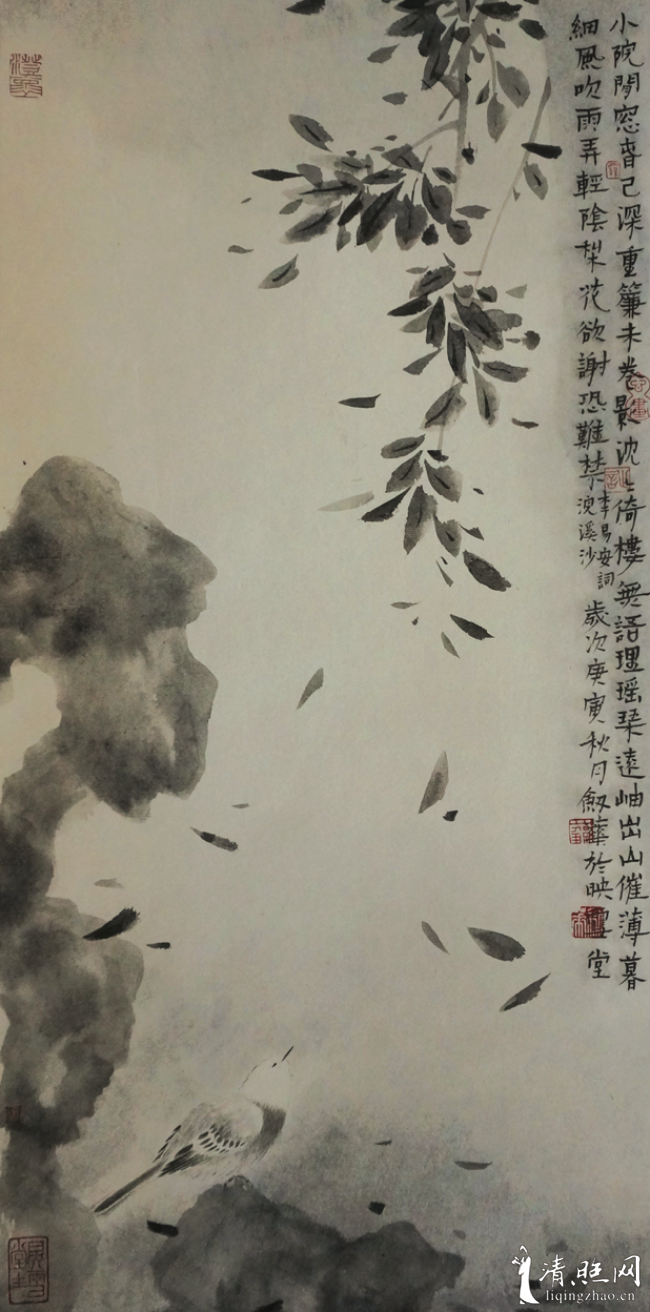 小院閒窓春己深重簾未卷影沈々倚樓無語理瑶琹遠岫出山催薄暮
細風吹雨弄輕陰梨花欲謝恐難禁
李易安詞
浣溪沙
歲次庚寅秋月劔華於映雪堂
清照网
liqingzhao.cn